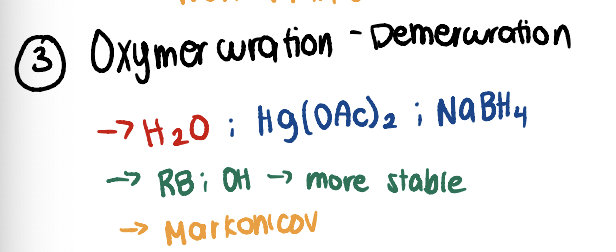 ③ Oxymercuration - Demercuration
→ H₂O ; Hg(OAc)₂ ; NaBH₄
→ RB ; OH → more stable
→ Markonicov